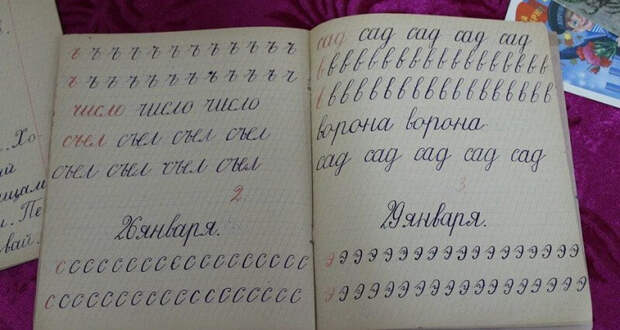 Хо
ай
ищам
и. Пе
вай.
ъ ъ ъ ъ ъ ъ ъ ъ ъ ъ ъ
ъ ъ ъ ъ ъ ъ ъ ъ ъ ъ ъ
число число число
съел съел съел съел
съел съел съел съел
2
26 января.
с с с с с с с с с с с с с с с с с
с с с с с с с с с с с с с с с с с
сад сад сад сад сад
в в в в в в в в в в в в в в в в в
в в в в в в в в в в в в в в в в в
ворона ворона
сад сад сад сад сад
3
29 января.
Э Э Э Э Э Э Э Э Э Э Э Э Э Э Э Э Э
Э Э Э Э Э Э Э Э Э Э Э Э Э Э Э Э Э